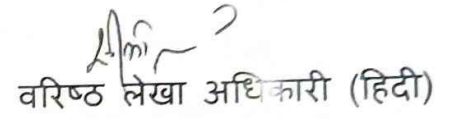 वरिष्ठ लेखा अधिकारी (हिदी)